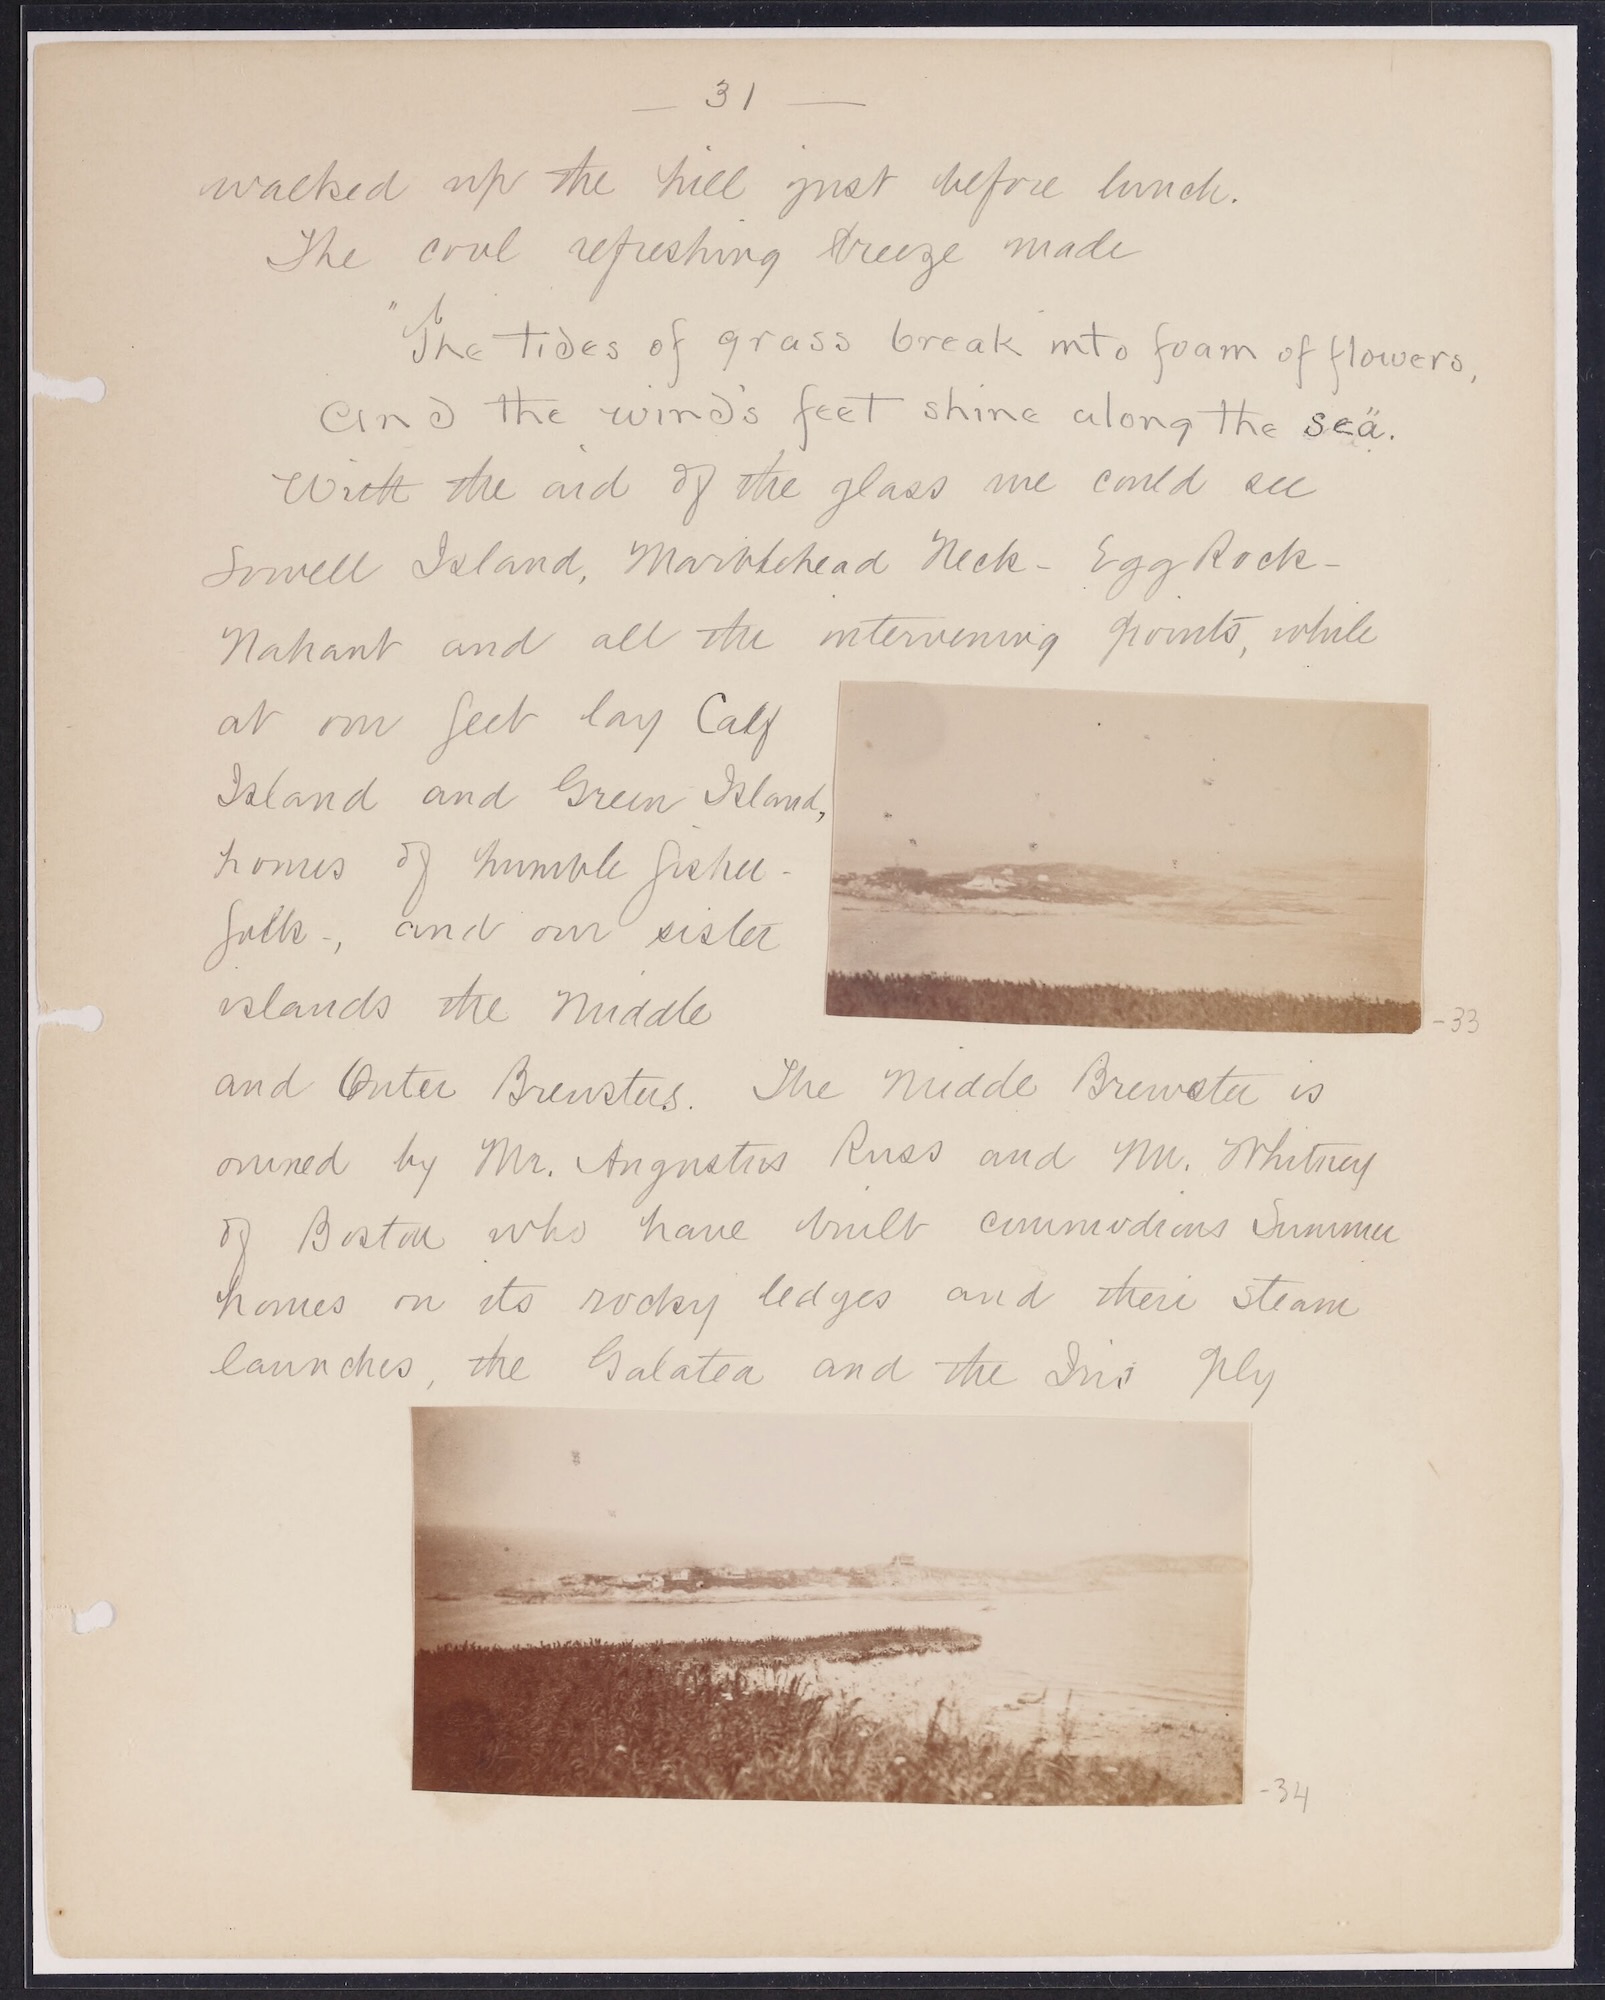 — 31 —
walked up the hill just before lunch.
The cool refreshing breeze made
"The tides of grass break into foam of flowers,
And the wind's feet shine along the sea".
With the aid of the glass we could see
Lowell Island, Marblehead Neck - Egg Rock -
Nahant and all the intervening points, while
at our feet lay Calf
Island and Green Island,
homes of humble fisher-
folk -, and our sister
islands the Middle
-33
and Outer Brewsters. The Middle Brewster is
owned by Mr. Augustus Russ and Mr. Whitney
of Boston who have built commodious Summer
homes on its rocky ledges and their steam
launches, the Galatea and the Iris ply
-34